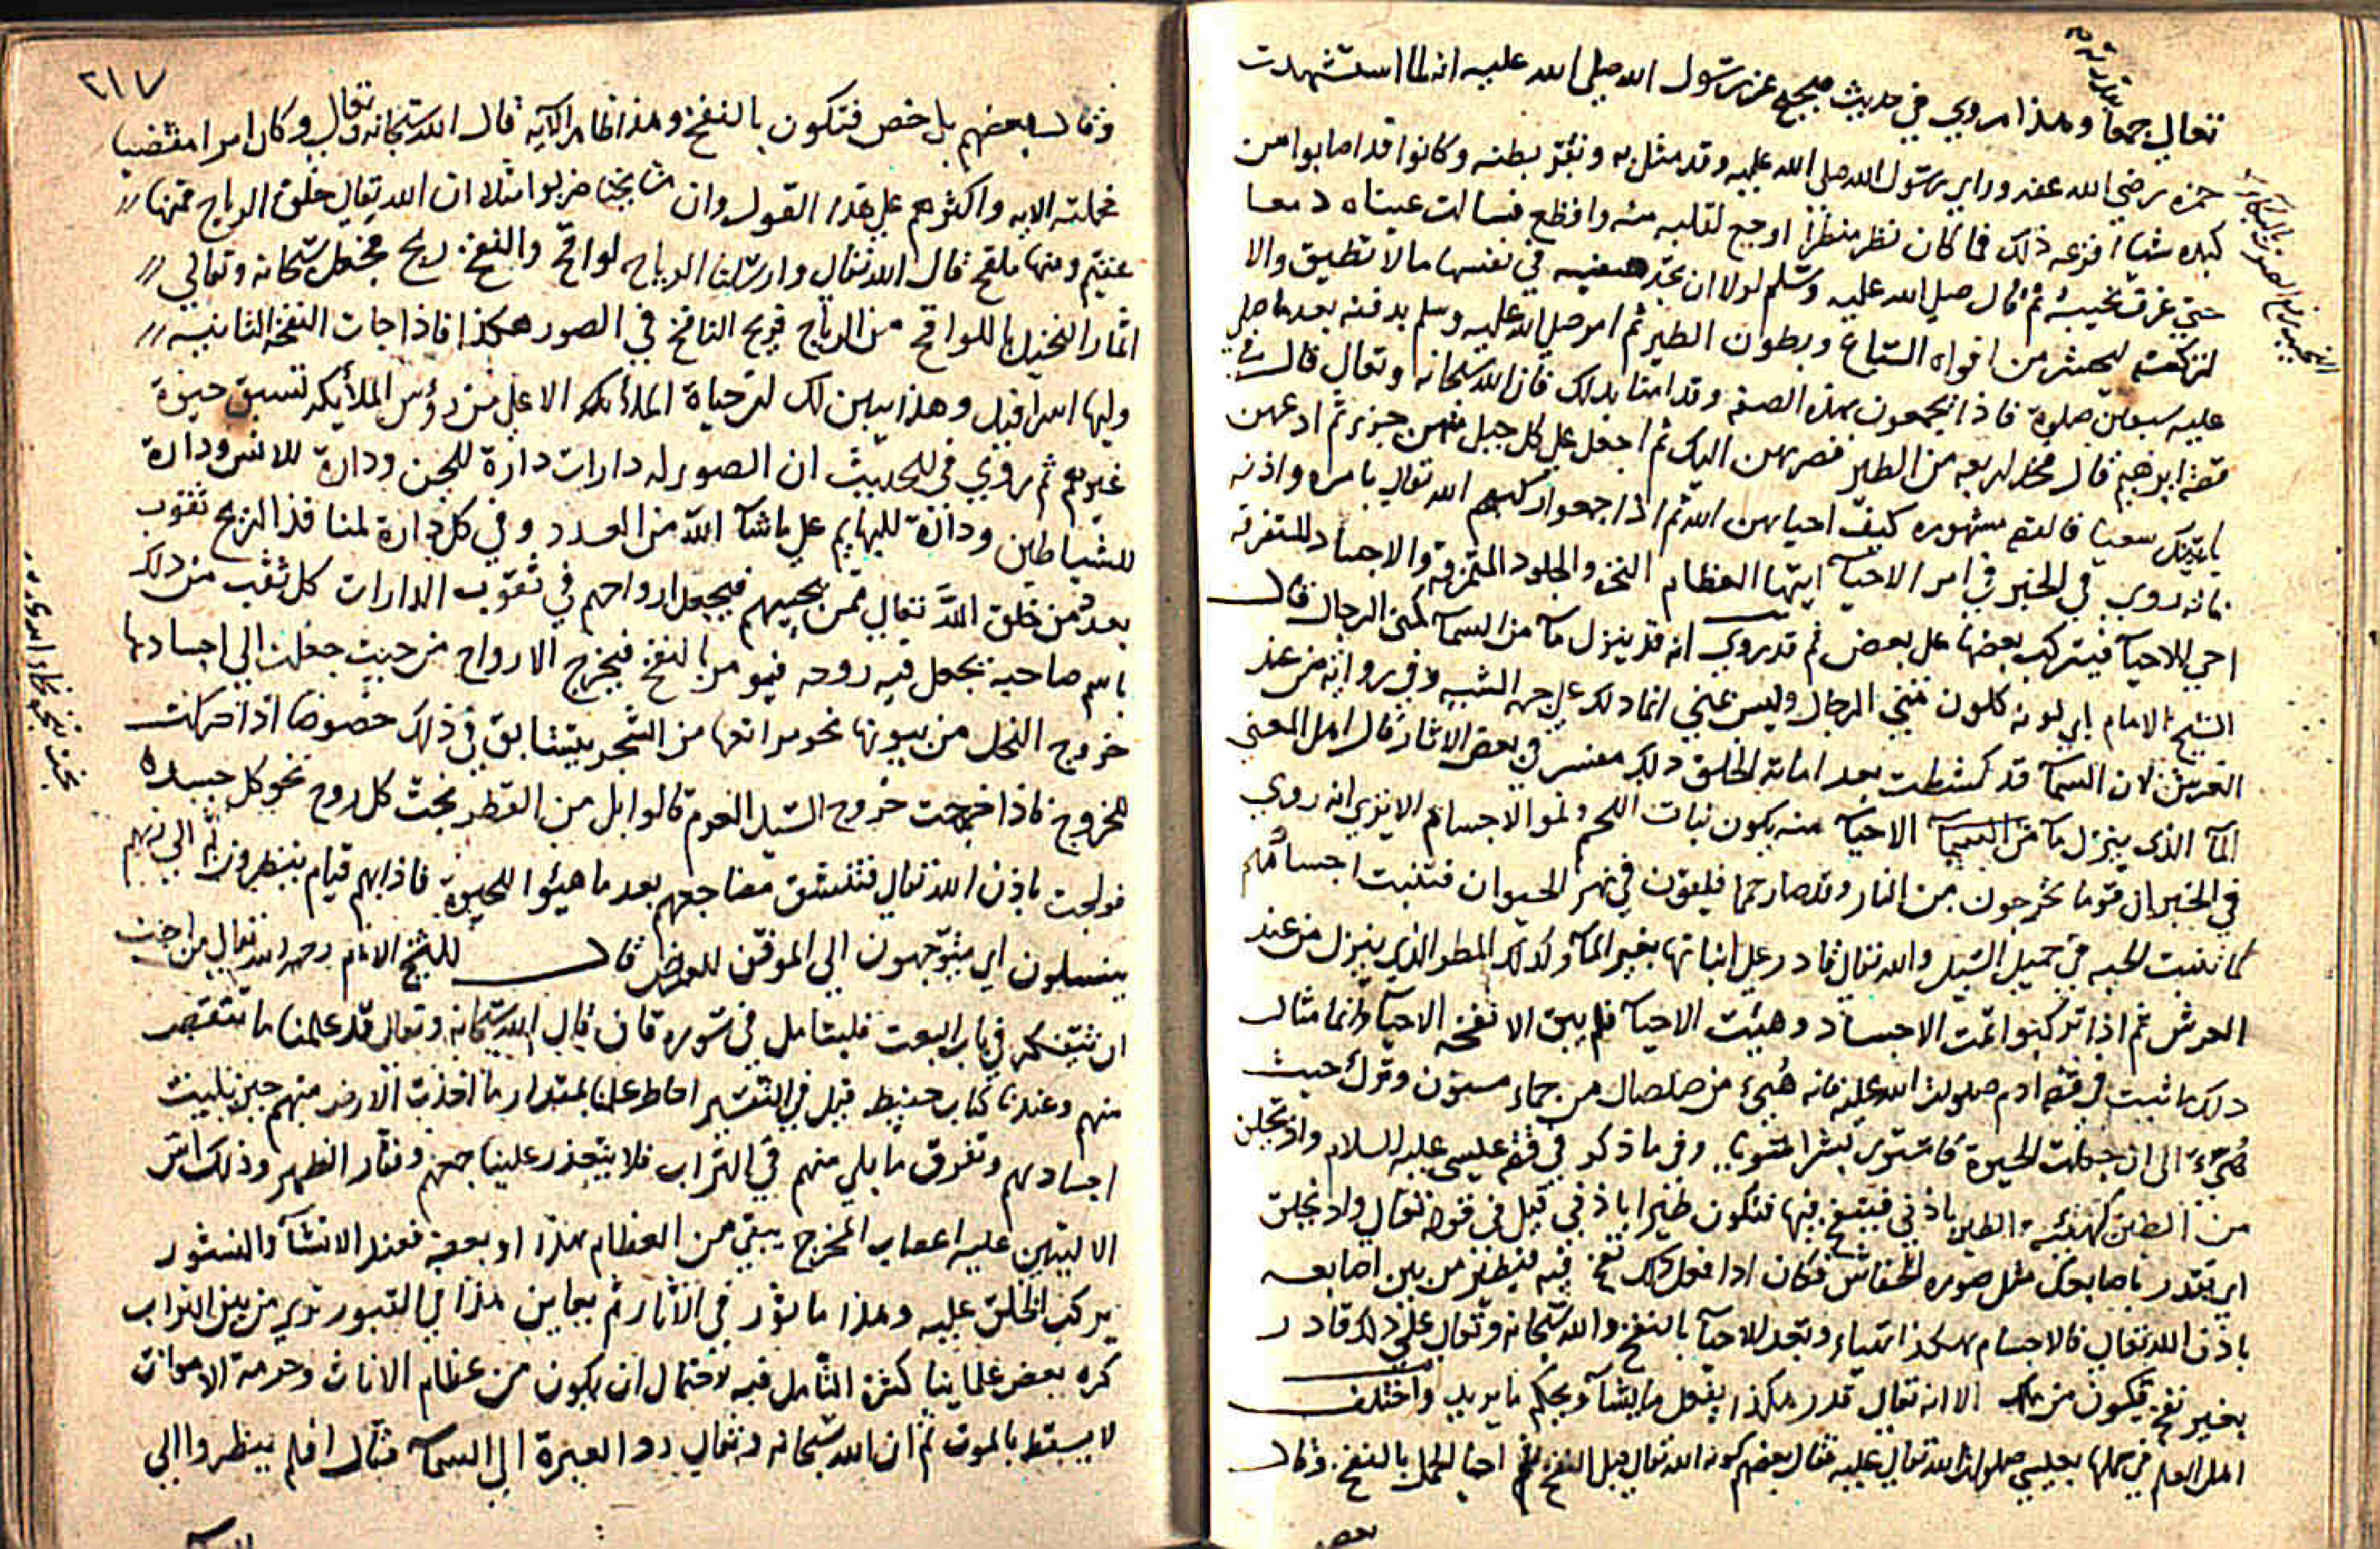 تعالى جمعا وهذا مروي في حديث صحيح عن رسول الله صلى الله عليه انه لما استشهدت
حمزه رضي الله عنه وراى رسول الله صلى الله عليه وقد مثل به وبقر بطنه وكانوا قد اصابوا من
كبده شيا افزعه ذلك فما كان نظر منظرا اوجع لقلبه منه وافظع فسالت عيناه دمعا
حتى غرق ثم قال صلى الله عليه وسلم لولا ان تجد صفيه في نفسها ما لا تطيق والا
لتركته ليحشر من افواه السباع وبطون الطير ثم امر صلى الله عليه وسلم بدفنه بعد ما صلى
عليه سبعين صلوة فاذا يجمعون بهذه الصفه وقد امنا بذلك فان الله سبحانه وتعالى قال في
قصة ابرهيم قال فخذ اربعه من الطير فصرهن اليك ثم اجعل على كل جبل منهن جزء ثم ادعهن
ياتينك سعيا فالقصه مشهوره كيف احياهن الله ثم اذا جمعوا ركبهم الله تعالى بامره واذنه
فانه روي في الخبر في امر الاحيآ ايتها العظام النخره والجلود المتمزقه والاجساد المتفرقه
احي للاحيآ فيتركب بعضها على بعض ثم قد روي انه قد ينزل مآ من السمآ كمني الرجال قال
الشيخ الامام اي لونه كلون مني الرجال وليس بمني انما ذلك على جهه الشبيه وفي روايه من عند
العرش لان السمآ قد كشطت بعد اماته الخلق وذلك مفسر في بعض الاثار قال اهل المعنى
المآ الذي ينزل مآ من السمآ الاحيآ منه يكون نبات اللحم ونمو الاجسام الا يرى انه روي
في الخبر ان قوما يخرجون من النار وقد صاروا حما فيلقون في نهر الحيوان فتنبت اجسامهم
كما تنبت الحبه في حميل السيل والله تعالى قادر على انباتها بغير المآ وكذلك المطر الذي ينزل من عند
العرش ثم اذا تركبوا تمت الاجساد وهيئت الاحيآ فلم يبق الا نفخه الاحيآ وانما مثال
ذلك ما ثبت في قصة ادم صلوات الله عليه فانه هيئ من صلصال من حماء مسنون وترك حيث
الى ان جعلت الحيوة فاستوى بشرا سويا وفي ما ذكر في قصة عيسى عليه السلام واذ تخلق
من الطين كهيئة الطير باذني فتنفخ فيها فتكون طيرا باذني قيل في قوله تعالى واذ تخلق
اي تقدر باصابعك مثل صوره الخفاش فكان اذا فعل ذلك نفخ فيه فيطير من بين اصابعه
باذن الله تعالى فالاجسام هكذا تهيأء وتعد للاحيآ بالنفخ والله سبحانه وتعالى على ذلك قادر
بغير نفخ فيكون من الا انه تعالى قدر هكذا يفعل ما يشآ ويحكم ما يريد واختلف
اهل العلم في حملها بعيسى صلوات الله تعالى عليه فقال بعضهم كونه الله تعالى قبل النفخ ثم احيا الحمل بالنفخ وقال
بعض
٢١٧
وقال بعضهم بل اخص فتكون بالنفخ وهذا ظاهر الآيه قال الله سبحانه وتعالى وكان امرا مقضيا
فحملته الايه واكثرهم على هذا القول وان مشايخنا ضربوا مثلا ان الله تعالى خلق الرياح فمنها
عقيم ومنها ملقح قال الله تعالى وارسلنا الرياح لواقح والنفخ ريح فجعل سبحانه وتعالى
اثمار النخيل باللواقح من الرياح فريح النافخ في الصور هكذا فاذا جات النفخة الثانيه
وليها اسرافيل وهذا يبين لك ان حياة الملائكة الاعلى من رؤس الملائكه تسبق حيوة
غيرهم ثم روي في الحديث ان الصور له دارات دارة للجن ودارة للانس ودارة
للشياطين ودارة للبهايم على ما شآ الله من العدد وفي كل دارة لمنافذ الريح ثقوب
بعدد من خلق الله تعالى ممن يحييهم فيجعل ارواحهم في ثقوب الدارات كل ثقب من ذلك
باسم صاحبه يجعل فيه روحه فيومر بالنفخ فيخرج الارواح من حيث جعلت الى اجسادها
خروج النحل من بيوتها نحو مراتعها من الشجر يتسابق في ذلك خصوصا اذا حركت
للخروج فاذا خرجت خروج السيل العرم كالوابل من القطر بحث كل روح نحو كل جسده
فولجت باذن الله تعالى فتنشق مضاجعهم بعد ما هيئوا للحيوة فاذاهم قيام ينظرون ثم الى ربهم
ينسلون اي يتوجهون الى الموقف للعرض قال الشيخ الامام رحمه الله تعالى من احب
ان يتفكر في باب البعث فليتامل في سوره قاف قال الله سبحانه وتعالى قد علمنا ما تنقص
منهم وعندنا كتاب حفيظ قيل في التفسير احاط علمنا بمقدار ما اخذت الارض منهم حين بليت
اجسادهم وتفرق ما بلي منهم في التراب فلا يتعذر علينا جمعهم وفقار الظهر وذلك اس
الاليتين عليه اعصاب المخرج يبقى من العظام هذا او بعضه فعند الانشآ والنشور
يركب الخلق عليه وهذا ماثور في الاثار ثم يعاين هذا في القبور ترى من بين التراب
كره بعض علماينا كثرة التامل فيه لاحتمال ان يكون من عظام الاناث وحرمة الاموات
لا يسقط بالموت ثم ان الله سبحانه وتعالى رد العبرة الى السمآ فقال افلم ينظروا الى